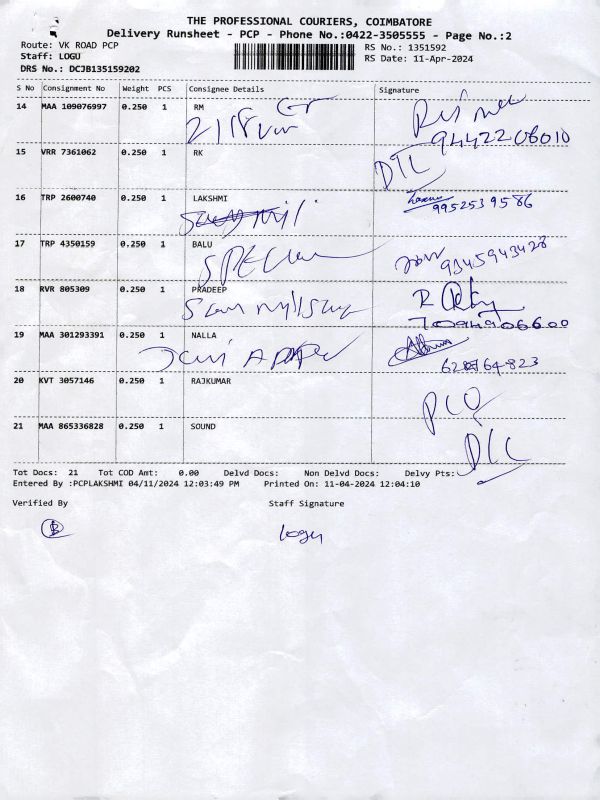 THE PROFESSIONAL COURIERS, COIMBATORE
Delivery Runsheet - PCP - Phone No.:0422-3505555 - Page No.:2
Route: VK ROAD PCP
RS No.: 1351592
Staff: LOGU
RS Date: 11-Apr-2024
DRS No.: DCJB135159202
S No Consignment No Weight PCS Consignee Details Signature
14 MAA 109076997 0.250 1 RM
9442206010
15 VRR 7361062 0.250 1 RK
DTL
16 TRP 2600740 0.250 1 LAKSHMI
9952539586
17 TRP 4350159 0.250 1 BALU
9345943428
18 RVR 805309 0.250 1 PRADEEP
7094906600
19 MAA 301293391 0.250 1 NALLA
20 KVT 3057146 0.250 1 RAJKUMAR
21 MAA 865336828 0.250 1 SOUND
Tot Docs: 21 Tot COD Amt: 0.00 Delvd Docs: Non Delvd Docs: Delvy Pts:
Entered By :PCPLAKSHMI 04/11/2024 12:03:49 PM Printed On: 11-04-2024 12:04:10
Verified By Staff Signature
Logu